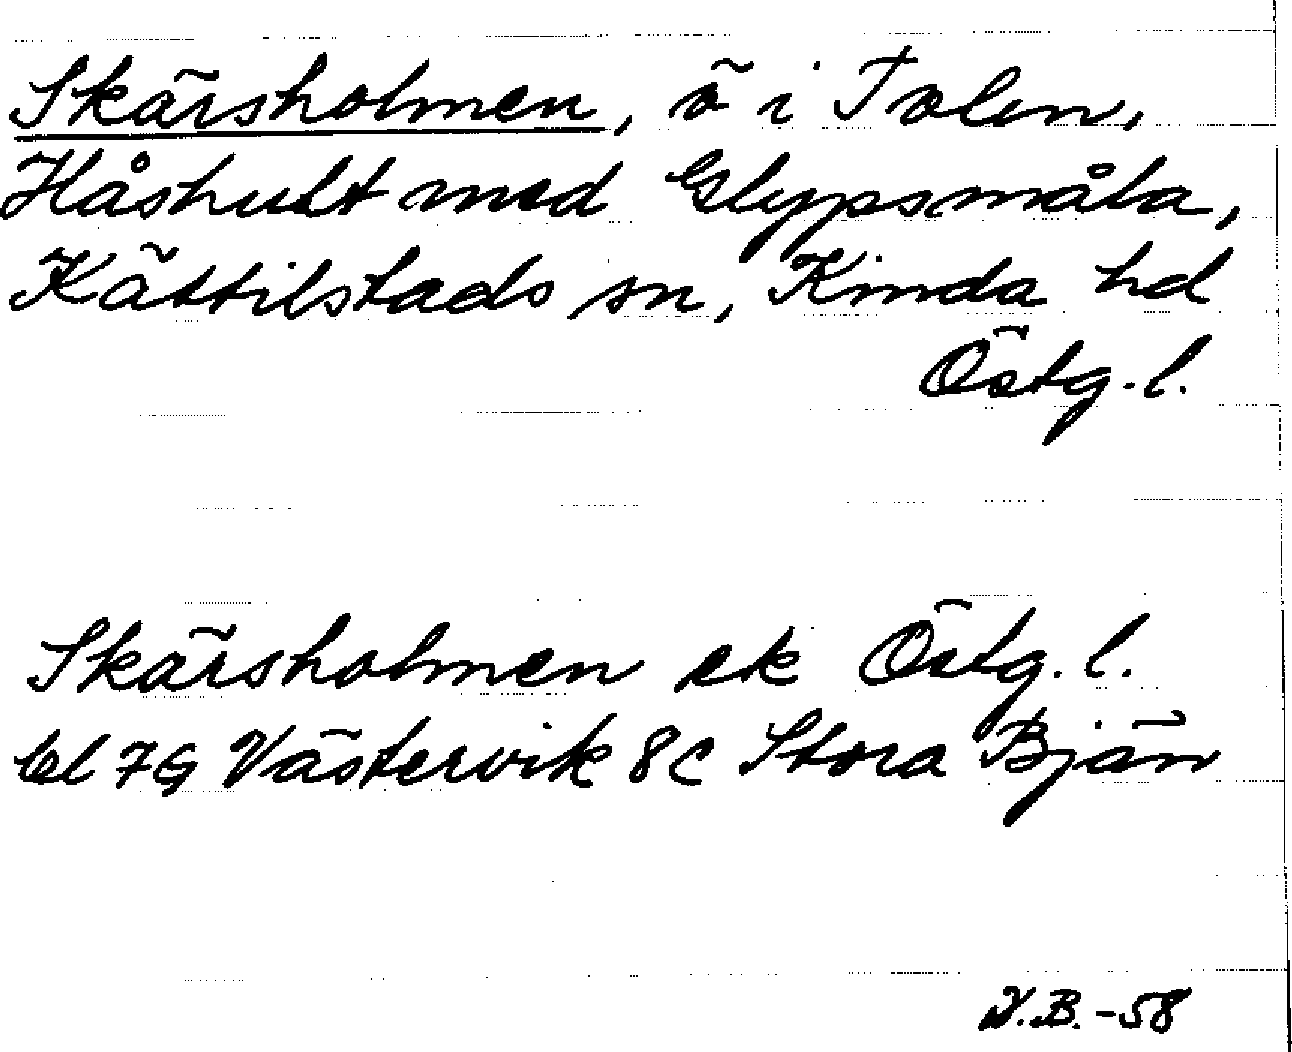 Skärsholmen, ö i Tolen,
Håshult med Glypsmåla,
Kättilstads sn, Kinda hd
Östg. l.
Skärsholmen ek Östg. l.
bl 7G Västervik 8C Stora Bjän
V.B. -58